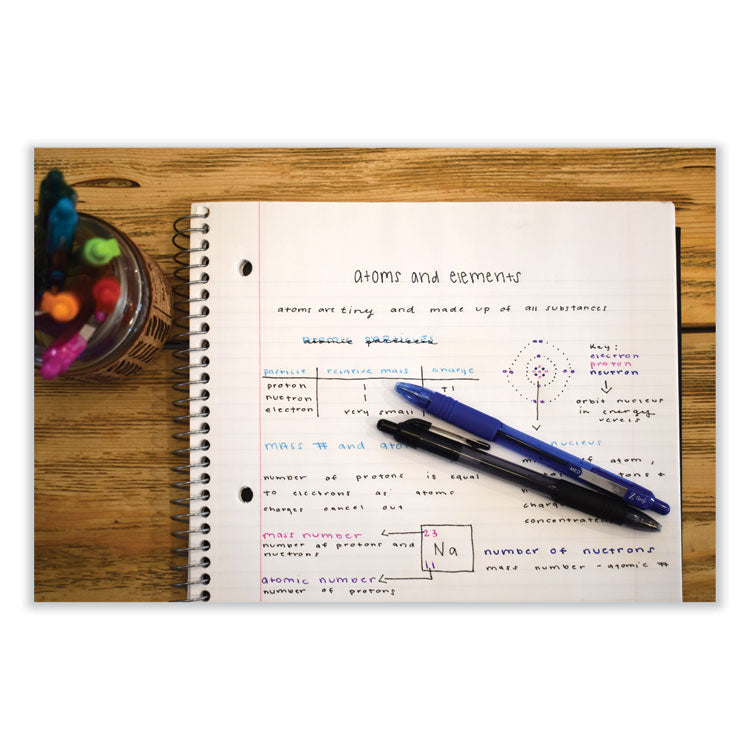 atoms and elements
atoms are tiny and made up of all substances
atomic particles
particle relative mass charge
proton 1 +1
nuetron 1
electron very small
Key:
electron
proton
neutron
orbit nucleus
in energy
mass # and
nucleus
of atom,
number of protons is equal
to electrons as atoms
charges cancel out
charge
concentrated
mass number
number of protons and
nuetrons
23
Na
11
number of nuetrons
mass number - atomic #
atomic number
number of protons
MED
Z-Grip